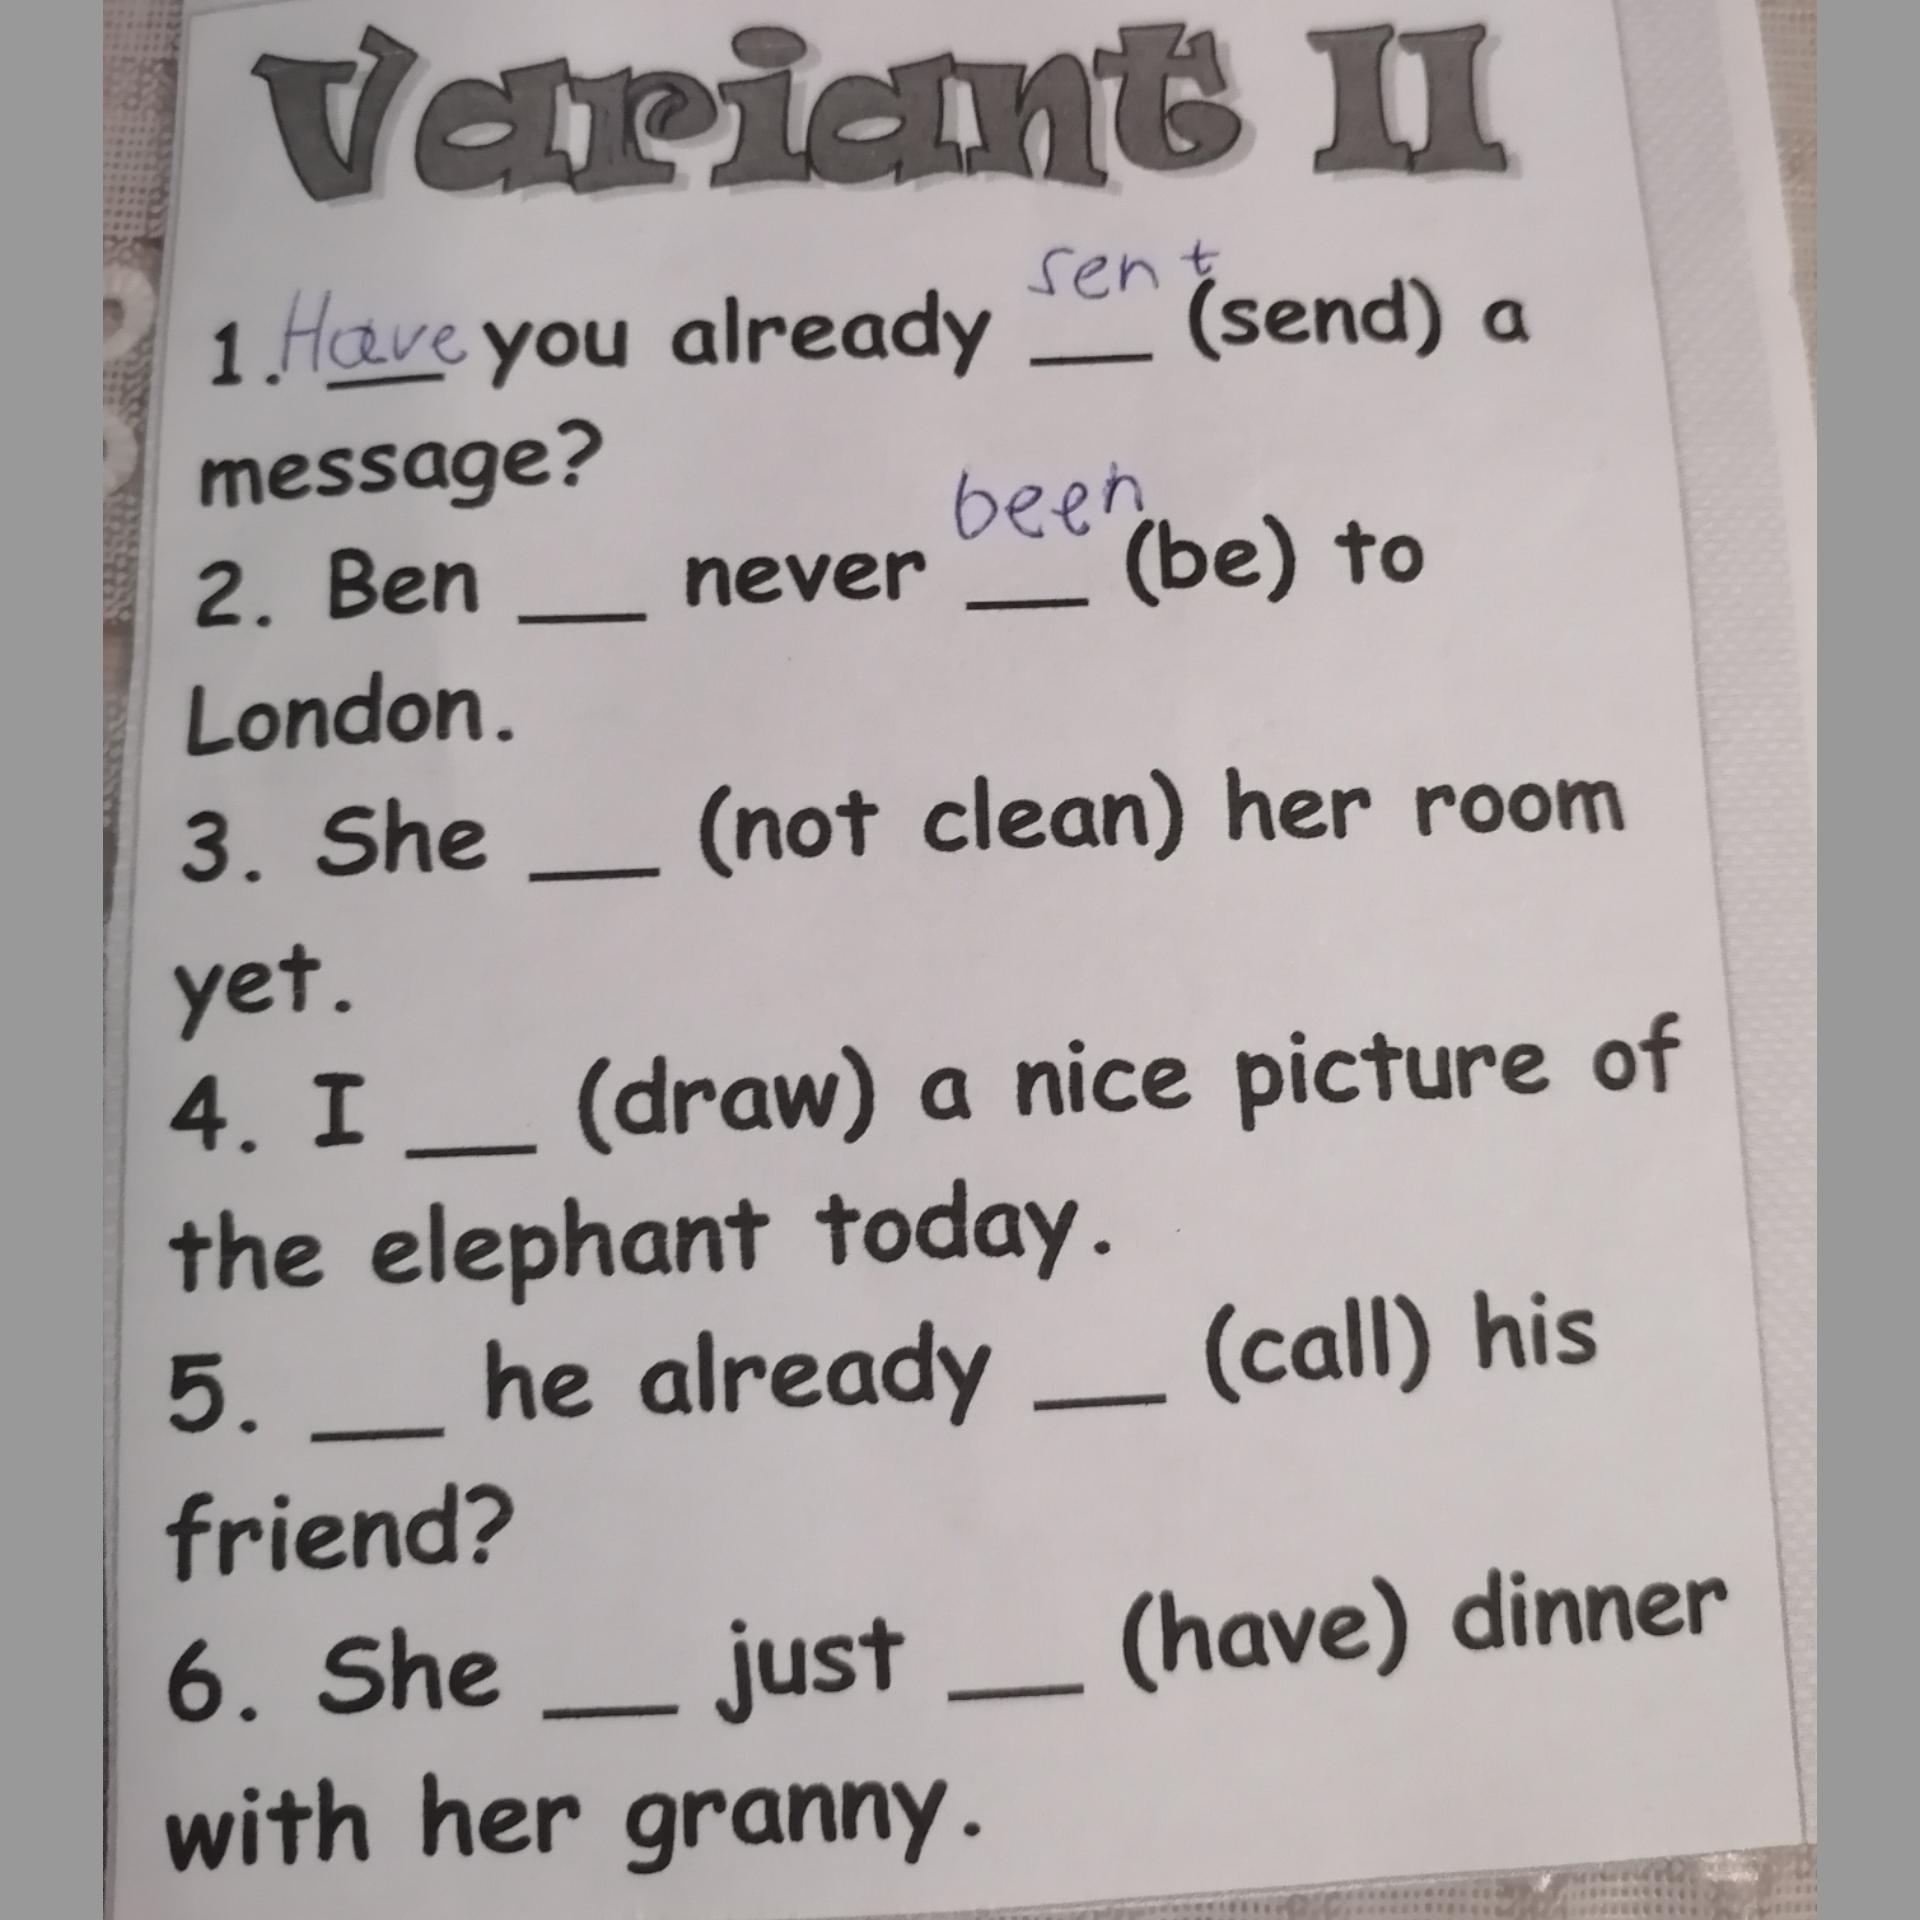 Variant II
1. Have you already ___ sent (send) a
message?
2. Ben ___ never ___ been (be) to
London.
3. She ___ (not clean) her room
yet.
4. I ___ (draw) a nice picture of
the elephant today.
5. ___ he already ___ (call) his
friend?
6. She ___ just ___ (have) dinner
with her granny.